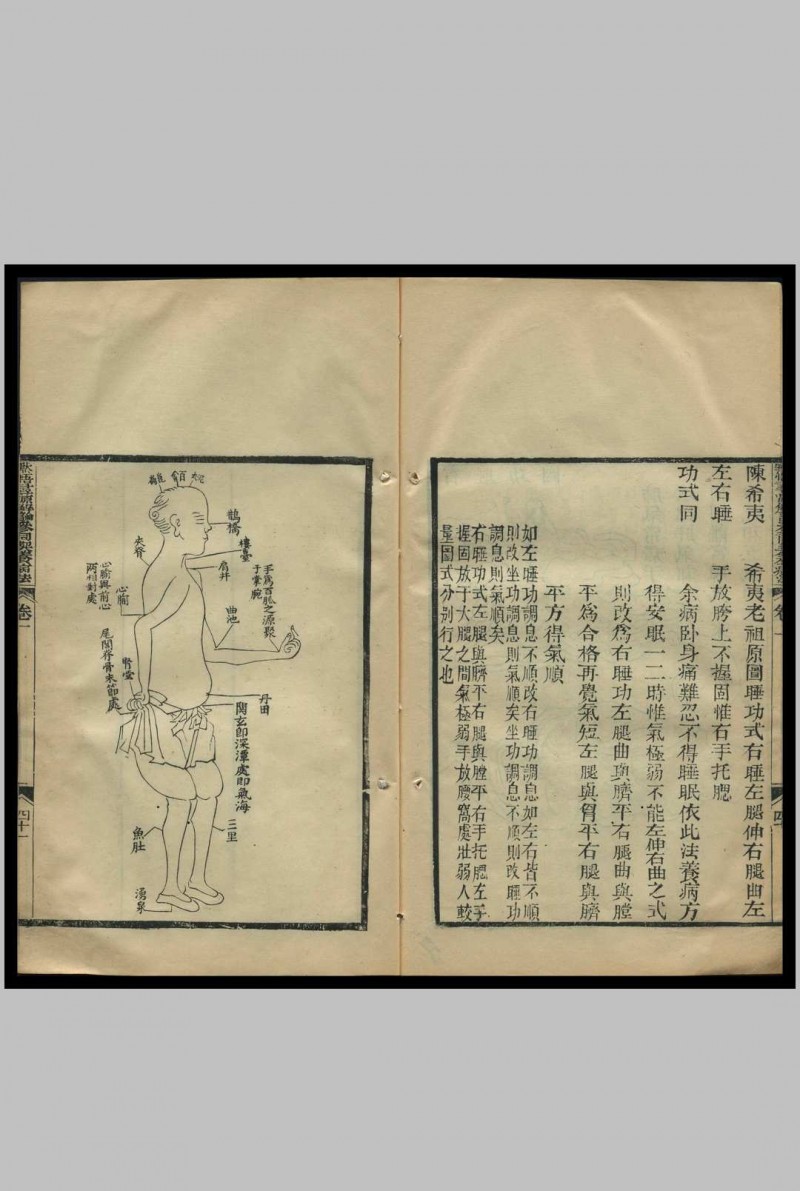 陳希夷　希夷老祖原圖睡功式右睡左腿伸右腿曲左
左右睡　手放胯上不握固惟右手托腮
功式同　余病卧身痛難忍不得睡眠依此法養病方
得安眠一二時惟氣極弱不能左伸右曲之式
則改爲右睡功左腿曲與臍平右腿曲與膛
平爲合格再覺氣短左腿與胷平右腿與臍
平方得氣順
如左睡功調息不順改右睡功調息如左右皆不順
則改坐功調息則氣順矣坐功調息不順則改睡功
調息則氣順矣
右睡功式左腿與臍平右腿與膛平右手托腮左手
握固放于大腿之間氣極弱手放腰窩處泄弱人較
量圖式分別行之也
卷一
鵲橋
樓臺
肩井
手爲百脉之源聚
于掌腕
曲池
夾脊
心腧
心腧與前心
兩相對處
腎堂
尾閭脊骨來節處
丹田
關玄即深潭處即氣海
三里
魚肚
湧泉
卷一
四十一